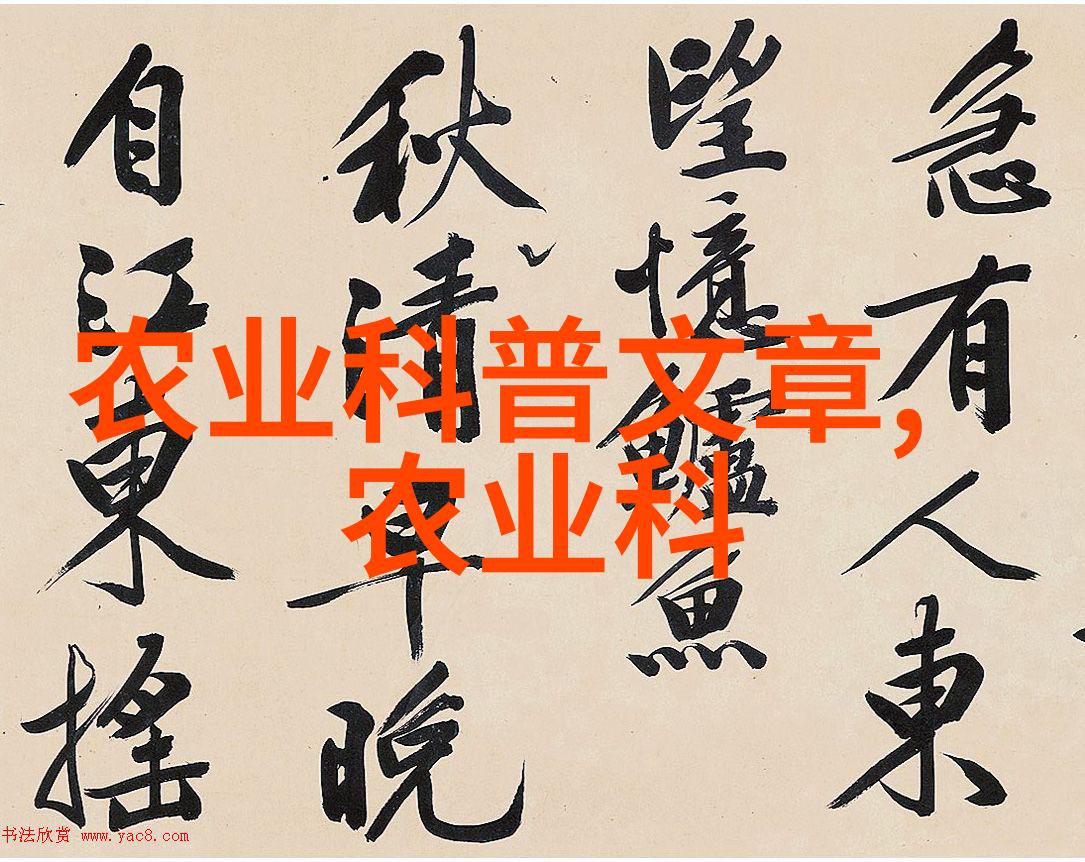 急有人東
望憶鱸魚
秋清早晚
自江東搖
农业科普文章,
农业科
书法欣赏 www.yac8.com